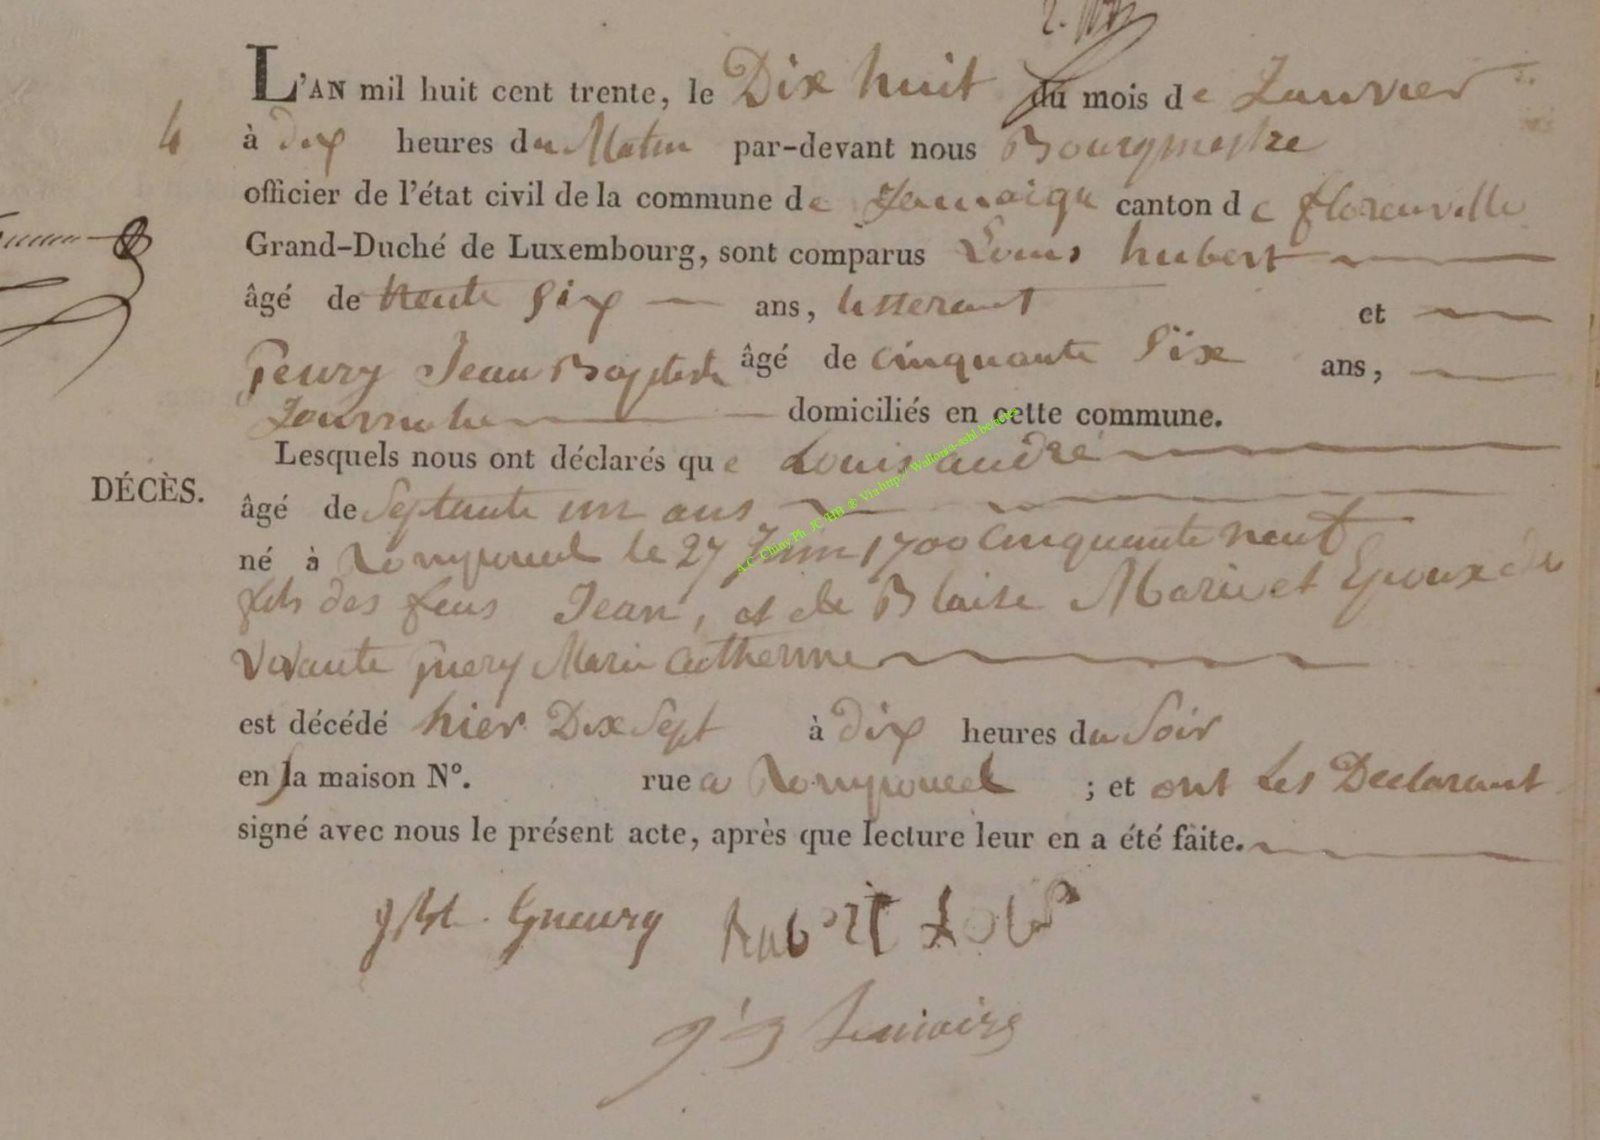 L'AN mil huit cent trente, le Dix huit du mois de Janvier
4
à dix heures du Matin par-devant nous Bourgmestre
officier de l'état civil de la commune de Jamoigne canton de florenville
Grand-Duché de Luxembourg, sont comparus Louis hubert
âgé de trente Six ans, et
Jean Baptiste âgé de cinquante Six ans,
domiciliés en cette commune.
Lesquels nous ont déclarés que Louis andré
DÉCÈS.
âgé de Septante un ans
né à Romponcel le 27 Juin 1700 Cinquante neuf
fils des feus Jean, et de Blaise Marie et Epoux de
vivante Guery Marie Catherinne
est décédé hier Dix Sept à dix heures du Soir
en la maison N°. rue a Romponcel ; et ont Les Declarant
signé avec nous le présent acte, après que lecture leur en a été faite.
Gueury hubert
A.C. Chiny Ph JC HB ® Via http://Wallonia-asbl.be